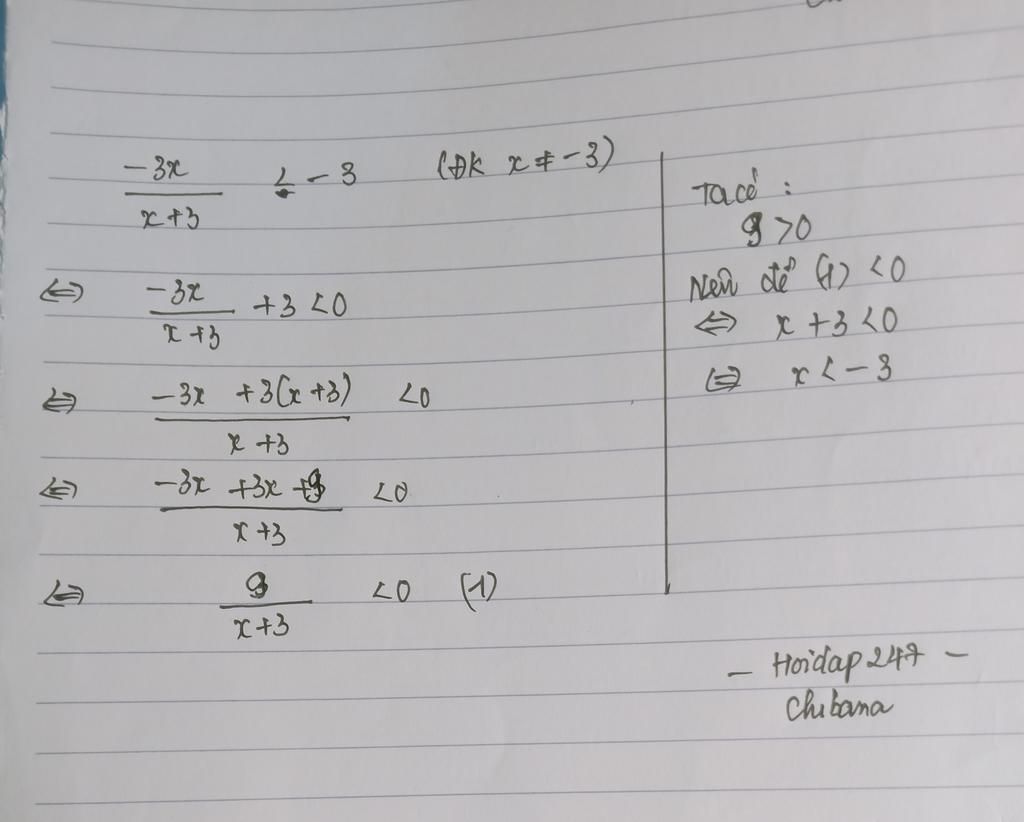 -3x/(x+3) < -3 (ĐK x ≠ -3)
⇔ -3x/(x+3) + 3 < 0
⇔ (-3x + 3(x+3))/(x+3) < 0
⇔ (-3x + 3x + 9)/(x+3) < 0
⇔ 9/(x+3) < 0 (1)
Ta có :
9 > 0
Nên để (1) < 0
⇔ x + 3 < 0
⇔ x < -3
- Hoidap247 -
Chibana